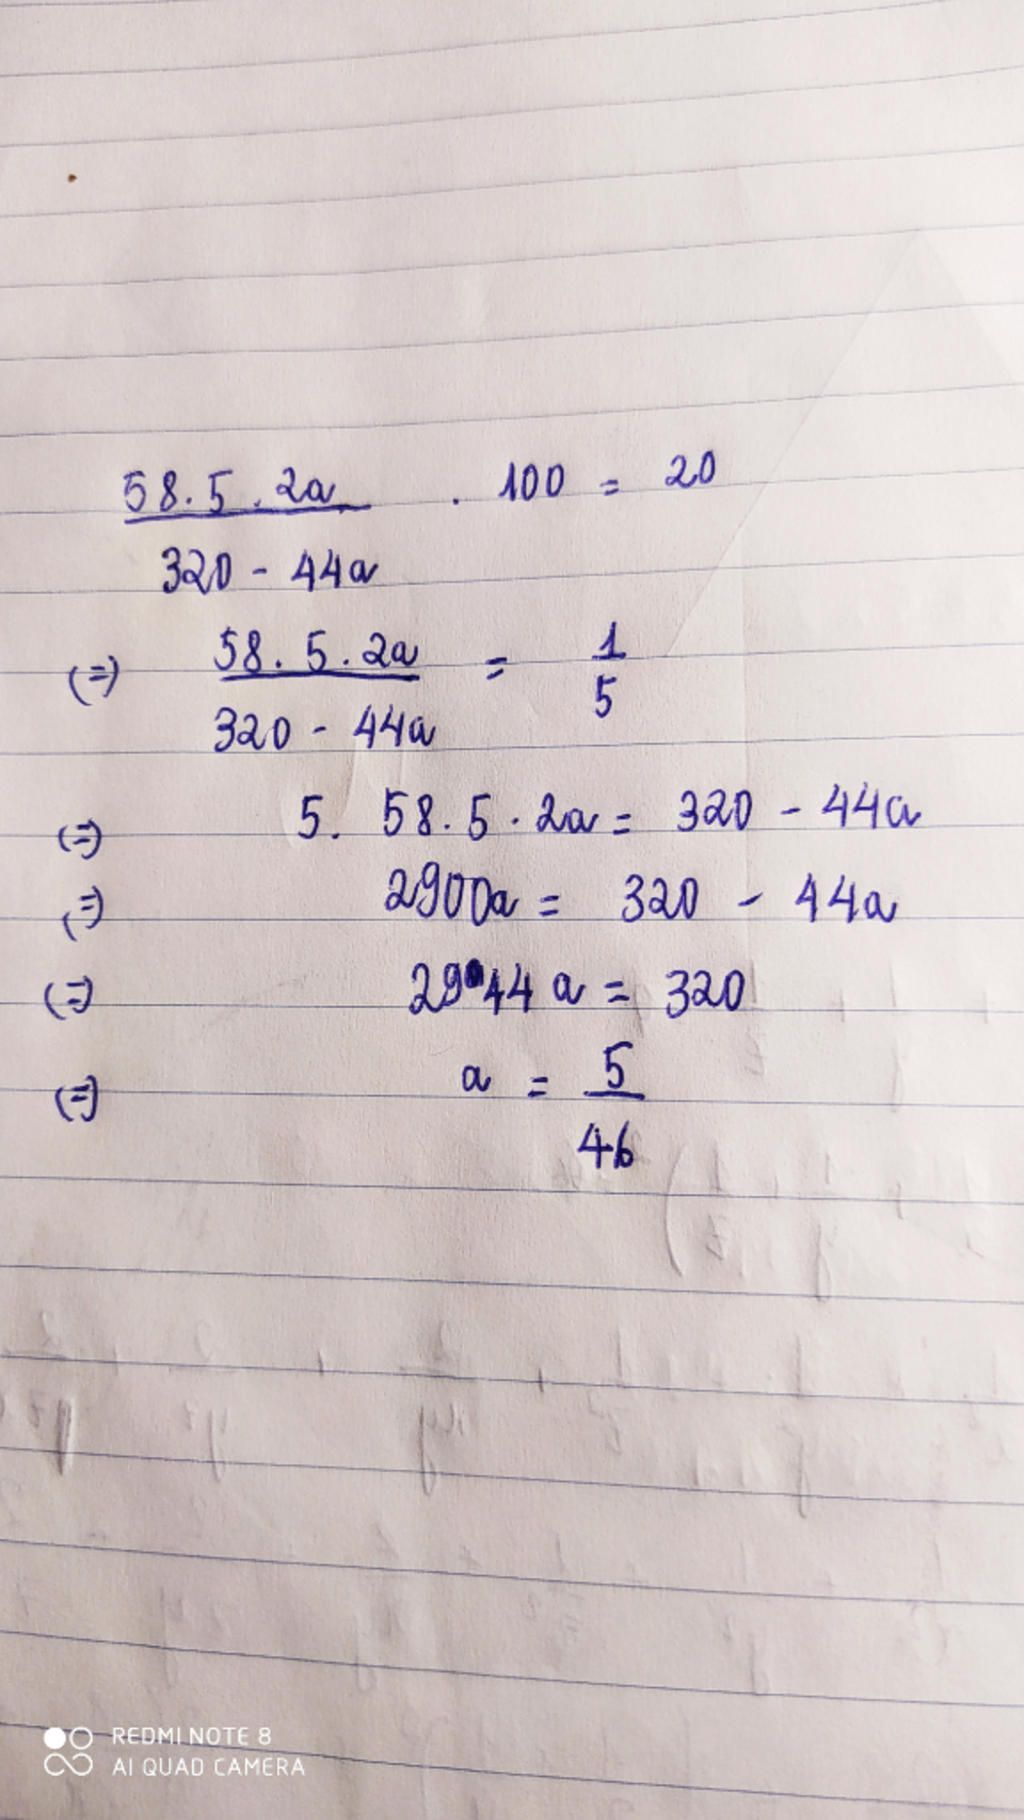 58.5.2a . 100 = 20
320 - 44a
(=) 58.5.2a = 1
320 - 44a 5
(=) 5. 58.5.2a = 320 - 44a
(=) 2900a = 320 - 44a
(=) 2944a = 320
(=) a = 5
46
REDMI NOTE 8
AI QUAD CAMERA